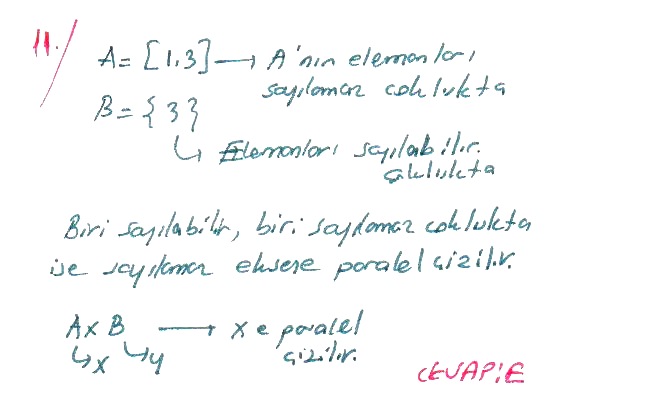 11.
A = [1,3] → A'nın elemanları
sayılamaz çoklukta
B = {3}
↳ Elemanları sayılabilir.
çoklukta
Biri sayılabilir, biri sayılamaz çoklukta
ise sayılamaz eksene paralel çizilir.
A x B → x e paralel
↳x ↳y çizilir.
CEVAP:E